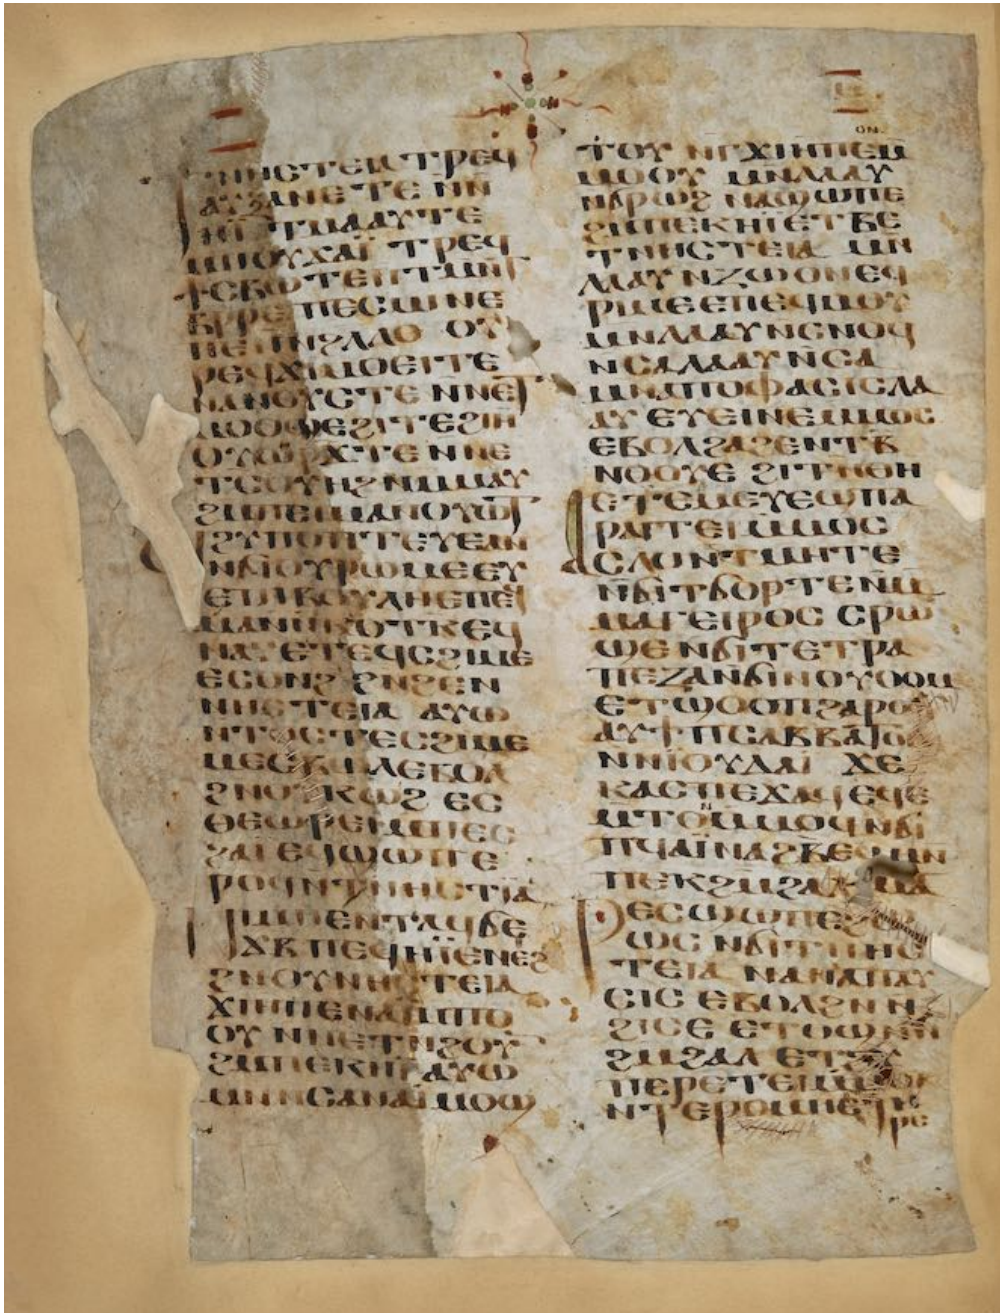 ⲛⲏⲥⲧⲉⲓⲁ ⲧⲣⲉϥ
ⲁⲩⲝⲁⲛⲉ ⲧⲉ ⲛⲛ
ⲧⲙⲁⲁⲩ ⲧⲉ
ⲙⲡⲟⲩϫⲁⲓ̈ ⲧⲣⲉϥ
ϯⲥⲃⲱ ⲧⲉ
ⲃⲣⲣⲉ ⲧⲉⲥⲱⲛⲉ
ⲛϩⲗⲗⲟ ⲟⲩ
ⲣⲉϥϫⲓⲙⲟⲉⲓⲧ ⲧⲉ
ⲛⲁⲛⲟⲩⲥ ⲧⲉ ⲛⲛⲉⲧ
ⲙⲟⲟϣⲉ ϩⲓ ⲧⲉϩⲓⲏ
ⲟⲩⲱⲣϫ ⲧⲉ ⲛⲛⲉ
ⲧⲥⲟⲩⲏϩ ⲛⲙⲙⲁⲩ
ϩⲙ ⲡⲉⲙⲁⲛⲟⲩⲱⲧ
ϩⲩⲡⲟⲡⲧⲉⲩⲉ ⲁⲛ
ⲛϭⲓ ⲟⲩⲣⲱⲙⲉ ⲉⲩ
ⲉⲡⲓⲃⲟⲩⲗⲏ ⲉⲡⲉϥ
ⲙⲁⲛⲛⲕⲟⲧⲕ ⲉϥ
ⲛⲁⲩ ⲉⲧⲉϥⲥϩⲓⲙⲉ
ⲉⲥⲟⲛϩ ϩⲛ ϩⲉⲛ
ⲛⲏⲥⲧⲉⲓⲁ ⲁⲩⲱ
ⲛⲧⲟⲥ ⲧⲉⲥϩⲓⲙⲉ
ⲙⲉⲥⲃⲱⲗ ⲉⲃⲟⲗ
ϩⲛ ⲟⲩⲕⲱϩ ⲉⲥ
ⲑⲉⲱⲣⲉⲓ ⲙⲡⲉⲥ
ϩⲁⲓ ⲉϥϣⲱⲡⲉ
ⲣⲟϥ ⲛⲧⲛⲏⲥⲧⲓⲁ
ⲛⲓⲙ ⲡⲉⲛⲧⲁϥϭⲉ
ϫⲃ ⲡⲉϥⲏⲓ̈ ⲉⲛⲉϩ
ϩⲛ ⲟⲩⲛⲏⲥⲧⲉⲓⲁ
ϫⲓ ⲏⲡⲉ ⲛⲁⲓ ⲙⲡⲟ
ⲟⲩ ⲛⲛⲉⲧⲛϩⲟⲩⲛ
ϩⲙ ⲡⲉⲕⲏⲓ ⲁⲩⲱ
ⲙⲛⲛⲥⲁ ⲛⲁⲓ̈ ⲙⲟⲟϣ
ⲟⲛ
ⲧⲟⲩ ⲛⲅϫⲓ ⲏⲡⲉ ⲙ
ⲙⲟⲟⲩ ⲙⲛ ⲗⲁⲁⲩ
ⲛϭⲣⲱϩ ⲛⲁϣⲱⲡⲉ
ϩⲙ ⲡⲉⲕⲏⲓ̈ ⲉⲧⲃⲉ
ⲧⲛⲏⲥⲧⲉⲓⲁ ⲙⲛ
ⲗⲁⲁⲩ ⲛⲍⲱⲟⲛ ⲉϥ
ⲣⲓⲙⲉ ⲉⲡⲉϥⲙⲟⲩ
ⲙⲛ ⲗⲁⲁⲩ ⲛⲥⲛⲟϥ
ⲛⲥⲁ ⲗⲁⲁⲩ ⲛⲥⲁ
ⲙⲛ ⲁⲡⲟⲫⲁⲥⲓⲥ ⲗⲁ
ⲁⲩ ⲉⲩⲉⲓⲛⲉ ⲙⲙⲟⲥ
ⲉⲃⲟⲗ ϩⲁ ϩⲉⲛⲧⲃ
ⲛⲟⲟⲩⲉ ϩⲓⲧⲛ ⲑⲏ
ⲉⲧⲉⲙⲉⲩⲉϣⲡⲁ
ⲣⲁⲅⲅⲉⲓ ⲙⲙⲟⲥ
ⲁⲥⲗⲟ ⲛⲧⲙⲏⲧⲉ
ⲛϭⲓ ⲧϭⲟⲣⲧⲉ ⲛⲙ
ⲙⲁⲅⲉⲓⲣⲟⲥ ⲥⲣⲱ
ϣⲉ ⲛϭⲓ ⲧⲉⲧⲣⲁ
ⲡⲉⲍⲁ ⲛϭⲓⲛⲟⲩⲟⲟⲙ
ⲉⲧϣⲟⲟⲡ ϩⲁⲣⲟ
ⲁⲩϯ ⲡⲥⲁⲃⲃⲁⲧⲟⲛ
ⲛⲛⲓ̈ⲟⲩⲇⲁⲓ ϫⲉ
ⲕⲁⲥ ⲡⲉϫⲁϥ ⲉϥⲉ
ⲙⲧⲟⲛ ⲙⲙⲟϥ ⲛϭⲓ
ⲡϥⲁⲓ̈ⲛⲁϩⲃⲉϥ ⲙⲛ
ⲡⲉⲕϩⲙϩⲁⲗ
ⲣⲉⲥϣⲱⲡⲉ
ⲱⲥ ⲛϭⲓ ⲧⲛⲏⲥ
ⲧⲉⲓⲁ ⲛⲁⲛⲁⲡⲁⲩ
ⲥⲓⲥ ⲉⲃⲟⲗ ϩⲛ ⲛ
ϩⲓⲥⲉ ⲉⲧⲟϣ ⲛⲛ
ϩⲙϩⲁⲗ ⲉⲧϩⲩ
ⲡⲉⲣⲉⲧⲉⲓ ⲙⲙⲟⲕ
ⲛⲧⲉⲣⲟⲙⲡⲉ ⲧⲏ
ⲣⲥ